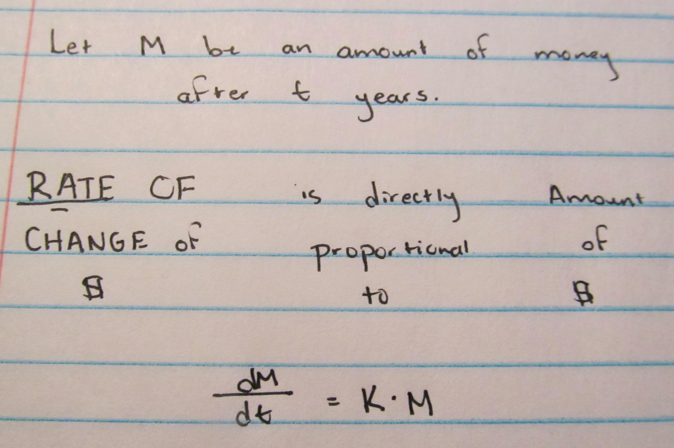 Let M be an amount of money
after t years.
RATE OF is directly Amount
CHANGE of proportional of
$ to $
dM/dt = K·M